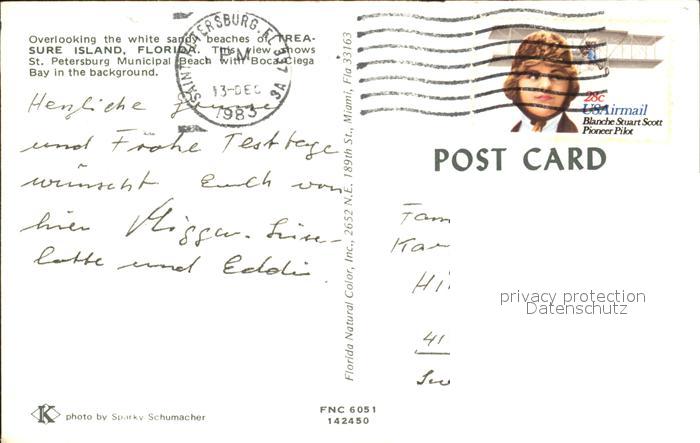 Overlooking the white sandy beaches of TREA-
SURE ISLAND, FLORIDA. This view shows
St. Petersburg Municipal Beach with Boca Ciega
Bay in the background.
SAINT PETERSBURG, FL
PM
13-DEC
1983
28c
USAirmail
Blanche Stuart Scott
Pioneer Pilot
POST CARD
Herzliche Grüsse
und Frohe Festtage
wünscht Euch von
hier Liselotte und Eddie.
Florida Natural Color, Inc., 2652 N.E. 189th St., Miami, Fla 33163
Fam
Ka
Hi
41
privacy protection
Datenschutz
K
photo by Sparky Schumacher
FNC 6051
142450